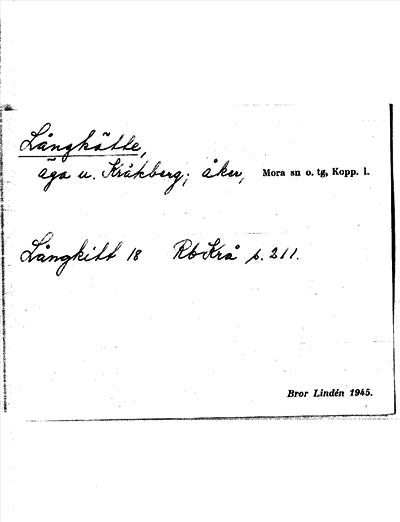 Långkätte,
äga u. Kråkberg; åker, Mora sn o. tg, Kopp. l.
Långkitt 18 Rb Krå s. 211.
Bror Lindén 1945.